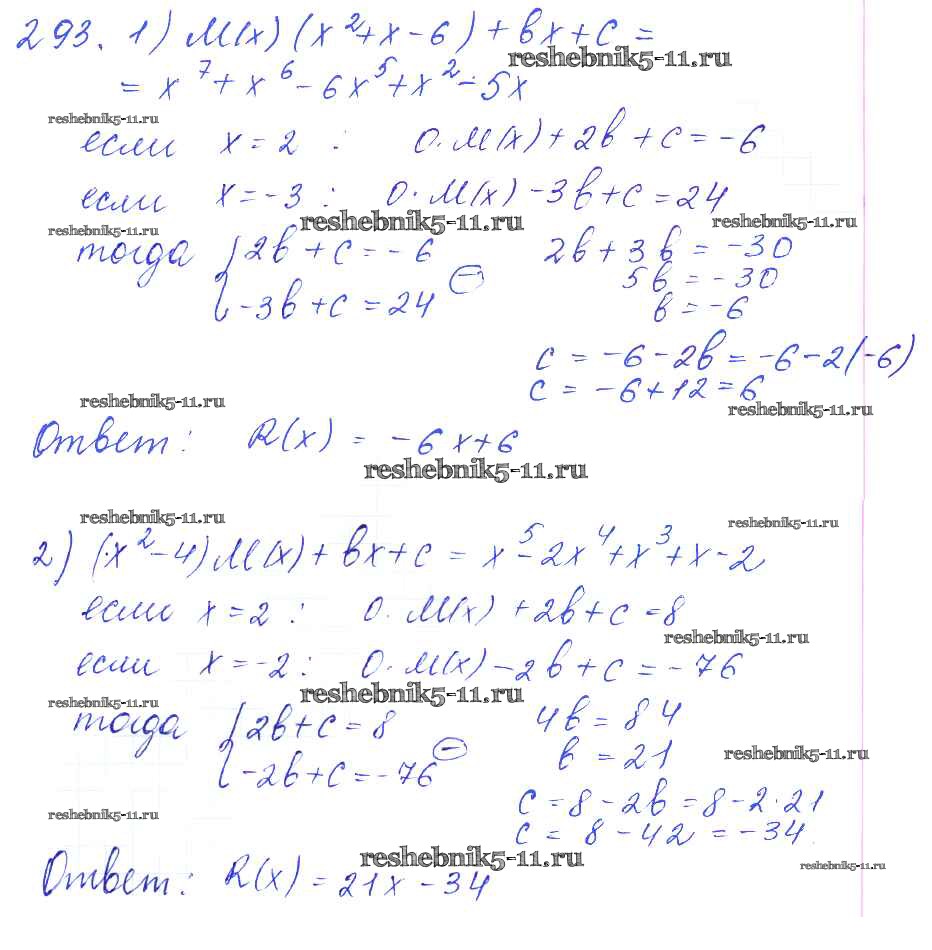 293. 1) M(x) (x²+x-6) + bx+c =
reshebnik5-11.ru
= x⁷ + x⁶ - 6x⁵ + x² - 5x
reshebnik5-11.ru
если x = 2 : 0·M(x) + 2b + c = -6
если x = -3 : 0·M(x) - 3b + c = 24
reshebnik5-11.ru reshebnik5-11.ru
reshebnik5-11.ru
тогда { 2b + c = -6 2b + 3b = -30
5b = -30
-3b + c = 24 (-) b = -6
c = -6 - 2b = -6 - 2(-6)
c = -6 + 12 = 6
reshebnik5-11.ru reshebnik5-11.ru
Ответ: R(x) = -6x+6
reshebnik5-11.ru
reshebnik5-11.ru reshebnik5-11.ru
2) (x²-4) M(x) + bx+c = x⁵ - 2x⁴ + x³ + x - 2
если x = 2 : 0·M(x) + 2b + c = 8
reshebnik5-11.ru
если x = -2 : 0·M(x) - 2b + c = -76
reshebnik5-11.ru reshebnik5-11.ru
тогда { 2b + c = 8 4b = 84
-2b + c = -76 (-) b = 21
reshebnik5-11.ru
c = 8 - 2b = 8 - 2·21
reshebnik5-11.ru
c = 8 - 42 = -34
reshebnik5-11.ru reshebnik5-11.ru
Ответ: R(x) = 21x - 34